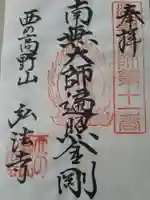 奉拝
南無大師遍照金剛
西の高野山
弘法寺